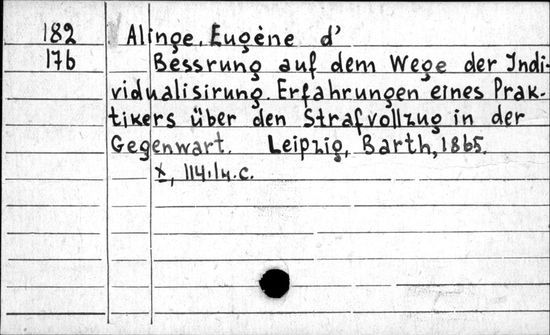 182 Alinge, Eugène d'
176 Bessrung auf dem Wege der Indi-
vidualisirung. Erfahrungen eines Prak-
tikers über den Strafvollzug in der
Gegenwart. Leipzig, Barth, 1865.
X, 114,